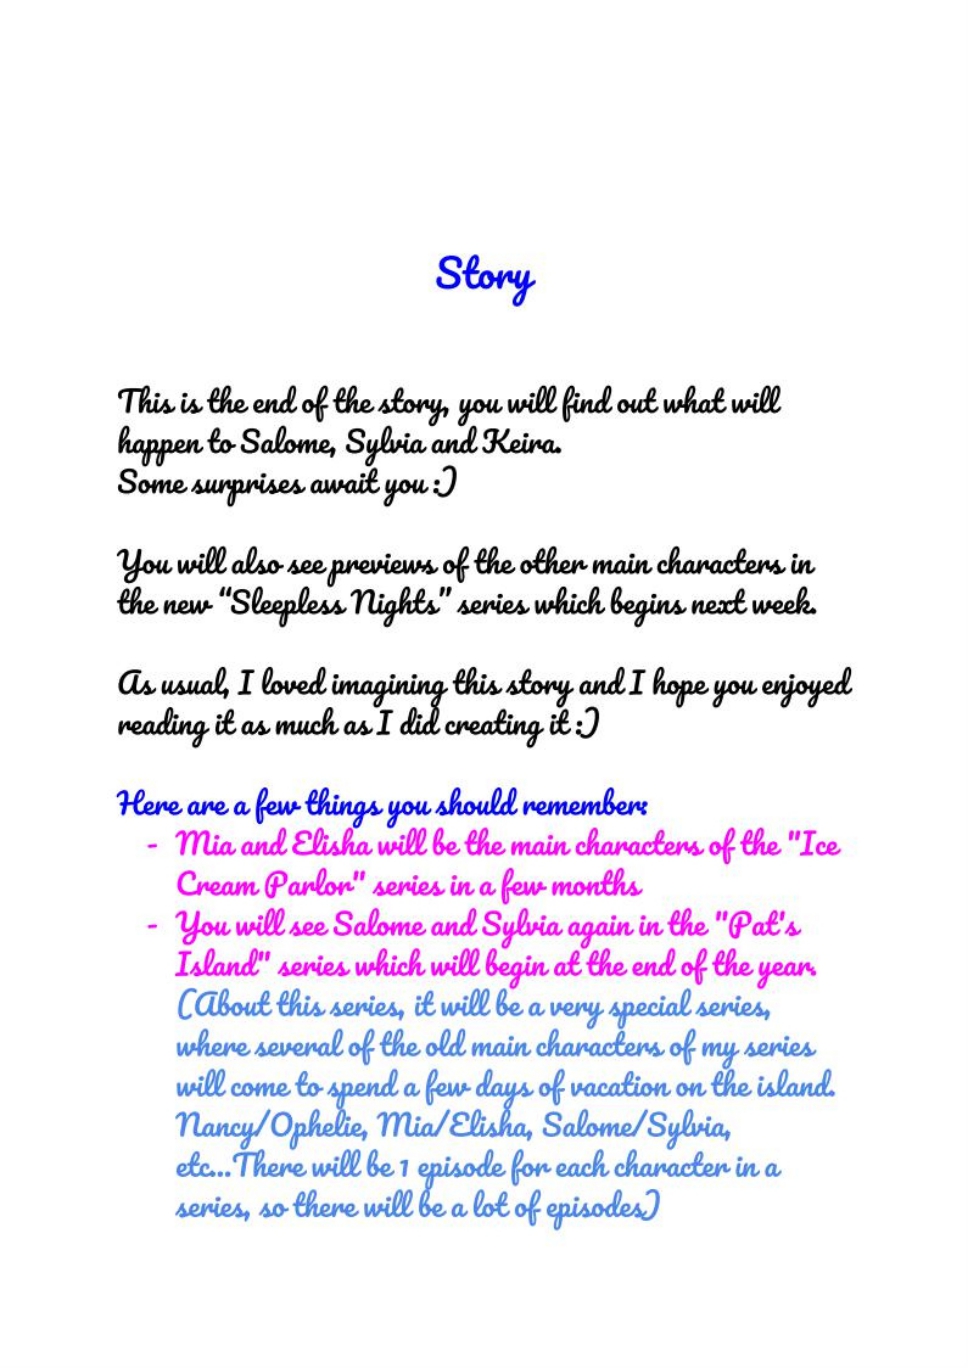 Story
This is the end of the story, you will find out what will
happen to Salome, Sylvia and Keira.
Some surprises await you :)
You will also see previews of the other main characters in
the new “Sleepless Nights” series which begins next week.
As usual, I loved imagining this story and I hope you enjoyed
reading it as much as I did creating it :)
Here are a few things you should remember:
- Mia and Elisha will be the main characters of the "Ice
Cream Parlor" series in a few months
- You will see Salome and Sylvia again in the "Pat's
Island" series which will begin at the end of the year.
(About this series, it will be a very special series,
where several of the old main characters of my series
will come to spend a few days of vacation on the island.
Nancy/Ophelie, Mia/Elisha, Salome/Sylvia,
etc...There will be 1 episode for each character in a
series, so there will be a lot of episodes)